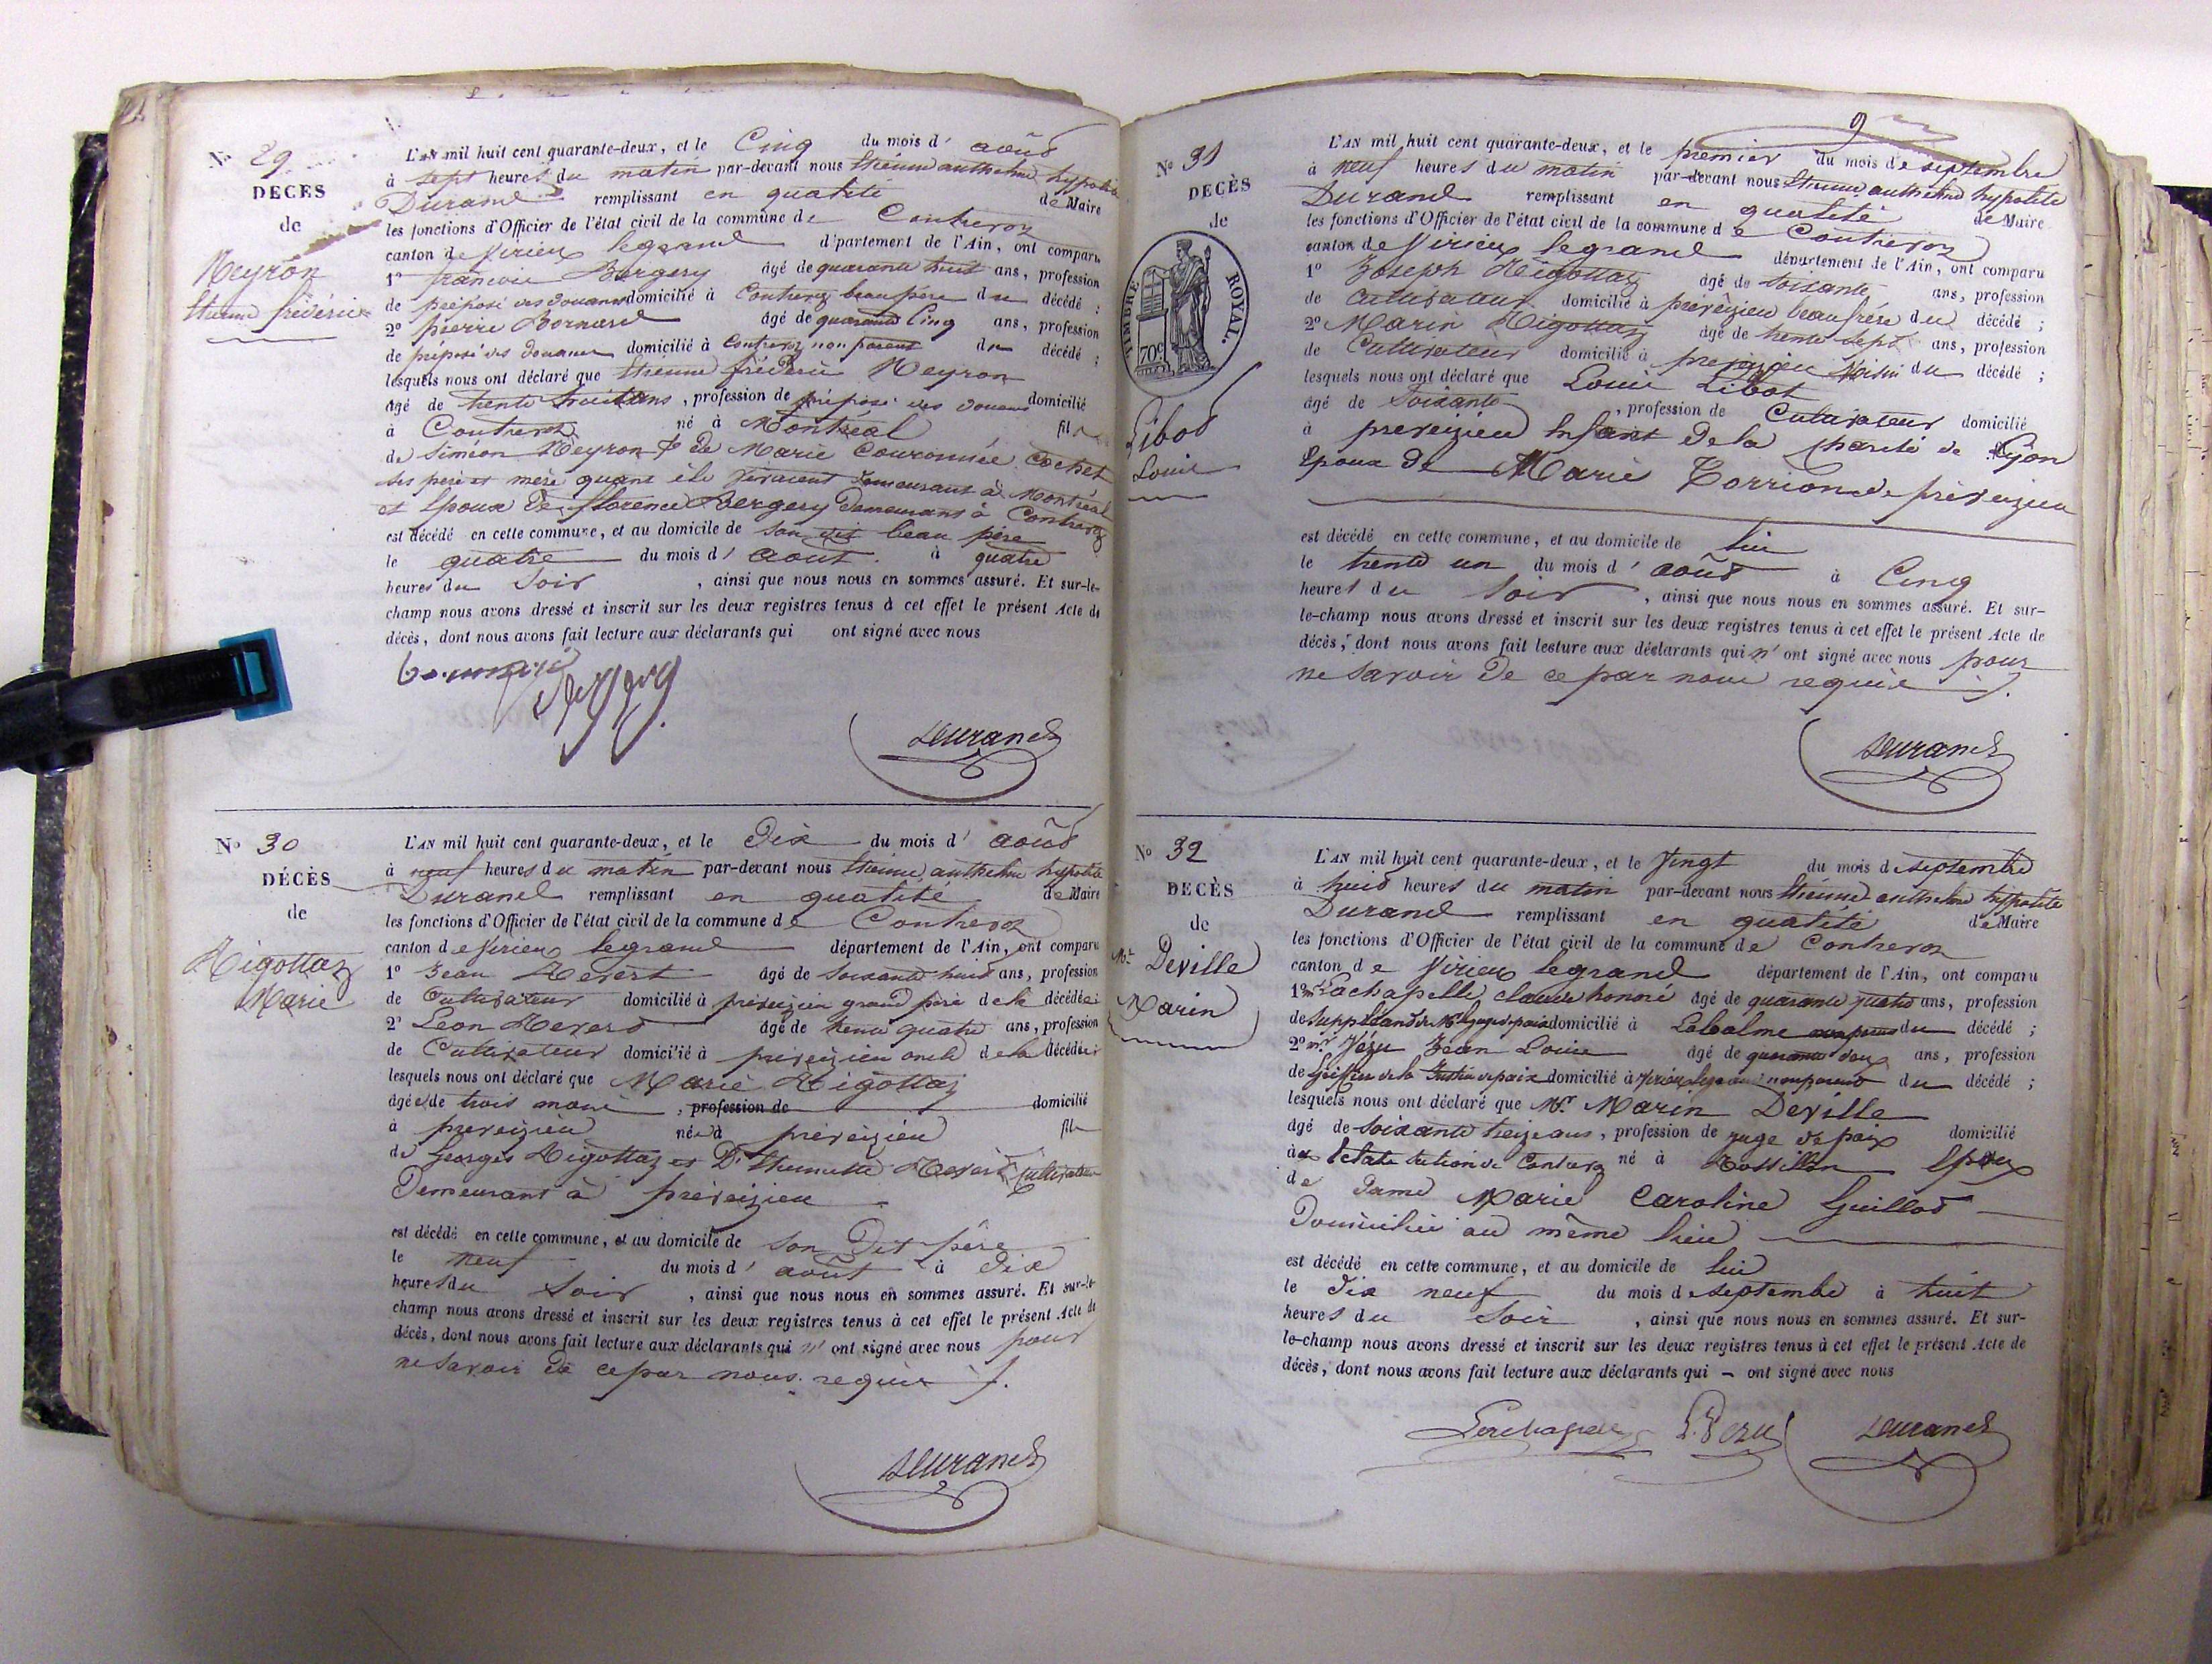 N° 29
DÉCÈS
de
Neyron
L'AN mil huit cent quarante-deux, et le Cinq du mois d' août
à sept heures du matin par-devant nous Etienne anthelme hyppolite
Durand remplissant en qualité de Maire
les fonctions d'Officier de l'état civil de la commune de Contrevoz
canton de Virieux legrand département de l'Ain, ont comparu
1° francois Bergery âgé de quarante huit ans, profession
de préposé des douanes domicilié à Contrevoz beau père du décédé ;
2° pierre Bornard âgé de quarante Cinq ans, profession
de préposé des douanes domicilié à Contrevoz non parent du décédé ;
lesquels nous ont déclaré que Etienne fréderic Neyron
âgé de trente huit ans, profession de préposé des douanes domicilié
à Contrevoz né à Montréal fils
de Siméon Neyron & de Marie Couronnée Cochet
ses père et mère quant ils vivaient demeurant à Montréal
et Epoux de florence Bergery demeurant à Contrevoz
est décédé en cette commune, et au domicile de son dit beau père
le quatre du mois d' aout à quatre
heures du Soir, ainsi que nous nous en sommes assuré. Et sur-le-
champ nous avons dressé et inscrit sur les deux registres tenus à cet effet le présent Acte de
décès, dont nous avons fait lecture aux déclarants qui ont signé avec nous
Bergery
Durand
N° 30
DÉCÈS
de
Rigottaz
Marie
L'AN mil huit cent quarante-deux, et le Dix du mois d' août
à neuf heures du matin par-devant nous Etienne anthelme hyppolite
Durand remplissant en qualité de Maire
les fonctions d'Officier de l'état civil de la commune de Contrevoz
canton de Virieux legrand département de l'Ain, ont comparu
1° Jean Revert âgé de Soixante huit ans, profession
de Cultivateur domicilié à préveizieu grand père de la décédée ;
2° Leon Revert âgé de trente quatre ans, profession
de Cultivateur domicilié à préveizieu oncle de la décédée ;
lesquels nous ont déclaré que Marie Rigottaz
âgée de trois mois, profession de domicilié
à preveizieu née à préveizieu fille
de Georges Rigottaz et D. thumette Revert Cultivateur
Demeurant à préveizieu
est décédé en cette commune, et au domicile de son Dit père
le neuf du mois d' août à Dix
heures du Soir, ainsi que nous nous en sommes assuré. Et sur-le-
champ nous avons dressé et inscrit sur les deux registres tenus à cet effet le présent Acte de
décès, dont nous avons fait lecture aux déclarants qui n' ont signé avec nous pour
ne savoir de ce par nous requis
Durand
9
N° 31
DECÈS
de
TIMBRE ROYAL.
70c
Libot
Louis
L'AN mil huit cent quarante-deux, et le premier du mois de septembre
à neuf heures du matin par-devant nous Etienne anthelme hypolite
Durand remplissant en qualité de Maire
les fonctions d'Officier de l'état civil de la commune de Contrevoz
canton de Virieux legrand département de l'Ain, ont comparu
1° Joseph Rigottaz âgé de Soixante ans, profession
de Cultivateur domicilié à préveizieu beau frère du décédé ;
2° Marin Rigottaz âgé de trente sept ans, profession
de Cultivateur domicilié à preveizieu Voisin du décédé ;
lesquels nous ont déclaré que Louis Libot
âgé de Soixante, profession de Cultivateur domicilié
à preveizieu Enfant De la Charité de Lyon
Epoux De Marie Torrion de préveizieu
est décédé en cette commune, et au domicile de lui
le trente un du mois d' août à Cinq
heures du Soir, ainsi que nous nous en sommes assuré. Et sur-
le-champ nous avons dressé et inscrit sur les deux registres tenus à cet effet le présent Acte de
décès, dont nous avons fait lecture aux déclarants qui n' ont signé avec nous pour
ne savoir De ce par nous requis
Durand
N° 32
DECÈS
de
Mr Deville
Marin
L'AN mil huit cent quarante-deux, et le Vingt du mois de septembre
à huit heures du matin par-devant nous Etienne anthelme hippolite
Durand remplissant en qualité de Maire
les fonctions d'Officier de l'état civil de la commune de Contrevoz
canton de Virieux legrand département de l'Ain, ont comparu
1° mr Lachapelle claude honoré âgé de quarante quatre ans, profession
de Suppléant de Mr le juge de paix domicilié à Labalme du décédé ;
2° mr Vézu Jean Louis âgé de quarante deux ans, profession
de Greffier de la Justice de paix domicilié à Virieu legrand non parent du décédé ;
lesquels nous ont déclaré que Mr Marin Deville
âgé de soixante treize ans, profession de juge de paix domicilié
de Contrevoz né à Rossillon Epoux
de Dame Marie Caroline Guillot
Domiciliée au même lieu
est décédé en cette commune, et au domicile de lui
le Dix neuf du mois de septembre à huit
heures du Soir, ainsi que nous nous en sommes assuré. Et sur-
le-champ nous avons dressé et inscrit sur les deux registres tenus à cet effet le présent Acte de
décès, dont nous avons fait lecture aux déclarants qui – ont signé avec nous
Lachapelle L. Vezu Durand